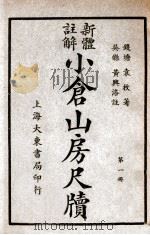 錢塘 袁枚著
吳縣 黃興洛註
新體註解
小倉山房尺牘
第一冊
上海大東書局印行